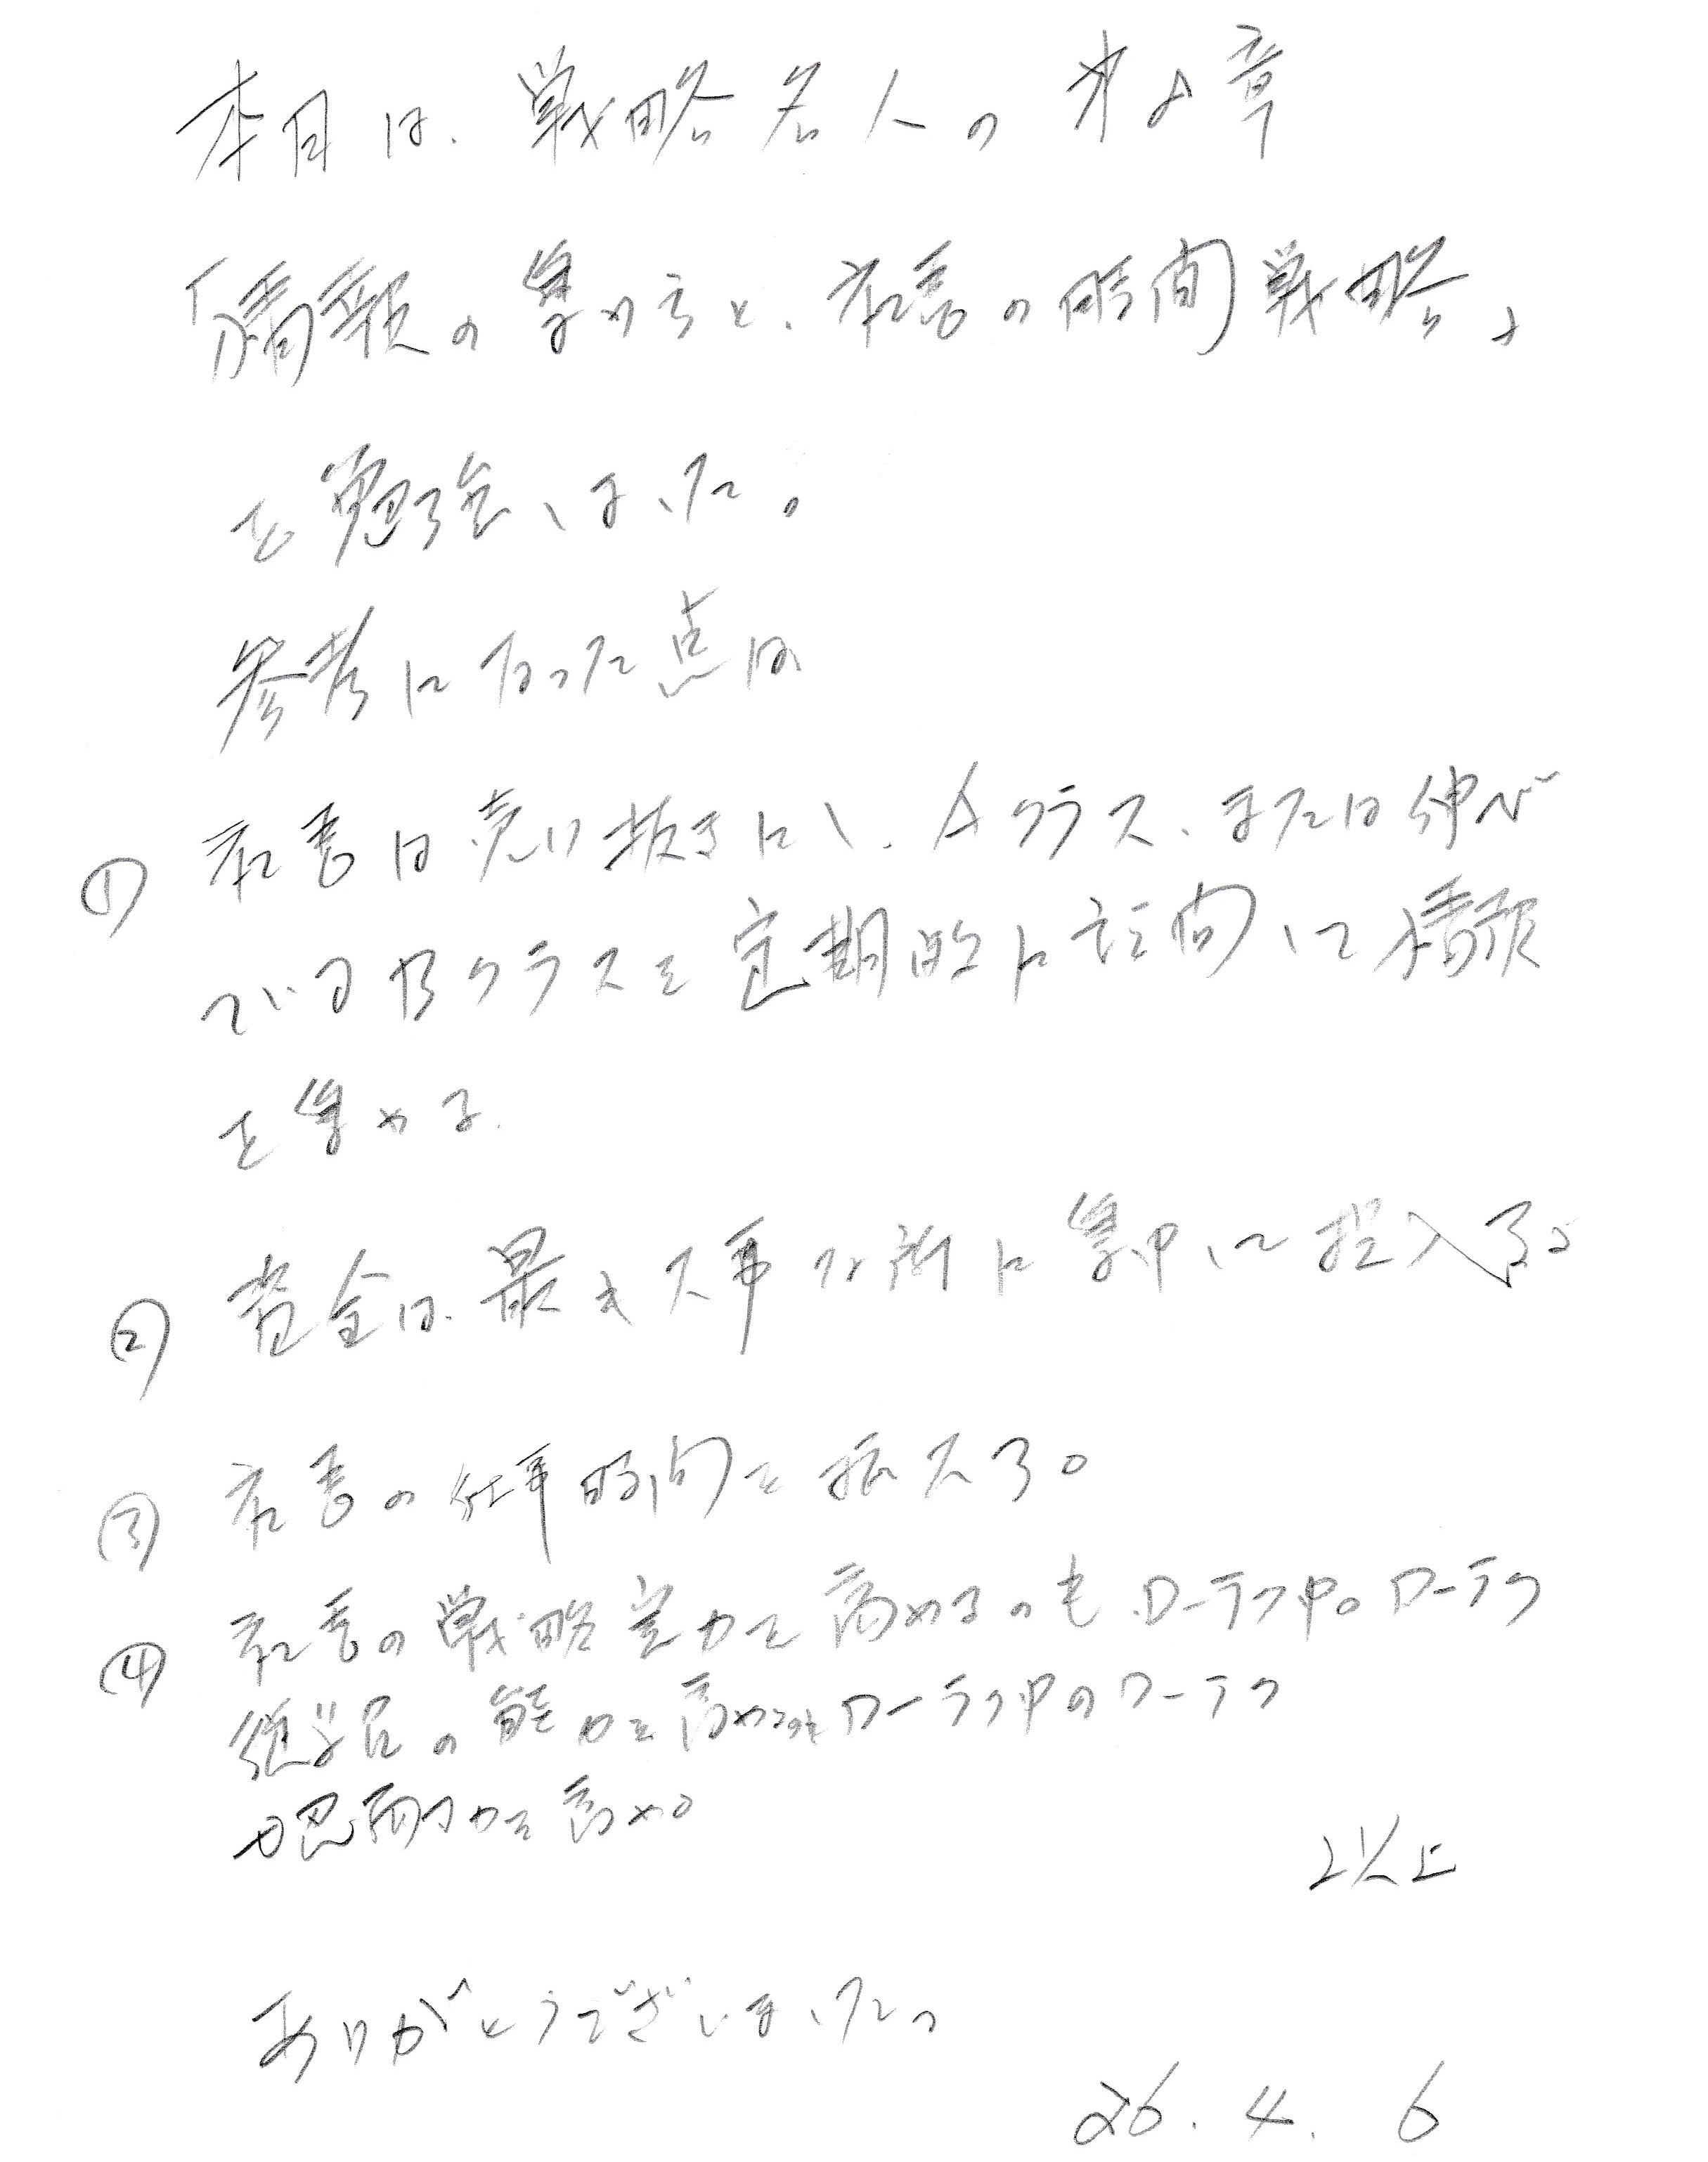 本日は、戦略名人の第8章
「情報の集め方と、社長の時間戦略」
を勉強しました。
参考になった点は
① 社長は売り抜きにし、Aクラス、または伸び
ているBクラスを定期的に訪問して情報
を集める。
② 資金は、最も大事な所に集中して投入する
③ 社長の仕事時間を拡大する。
④ 社長の戦略実力を高めるのもローテク中のローテク
従業員の能力を高めるのもローテク中のローテク
忍耐力を高める
以上
ありがとうございました。
26.4.6